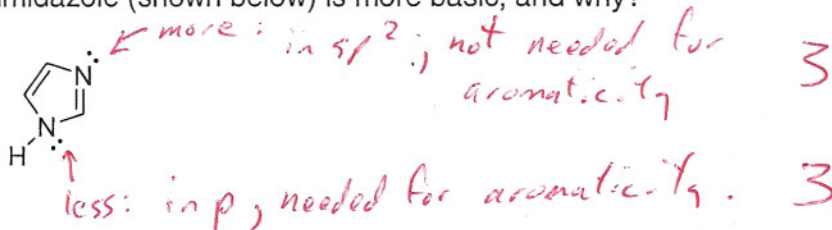 imidazole (shown below) is more basic, and why?
more: in sp²; not needed for
aromaticity
3
N
N
H
less: in p, needed for aromaticity.
3